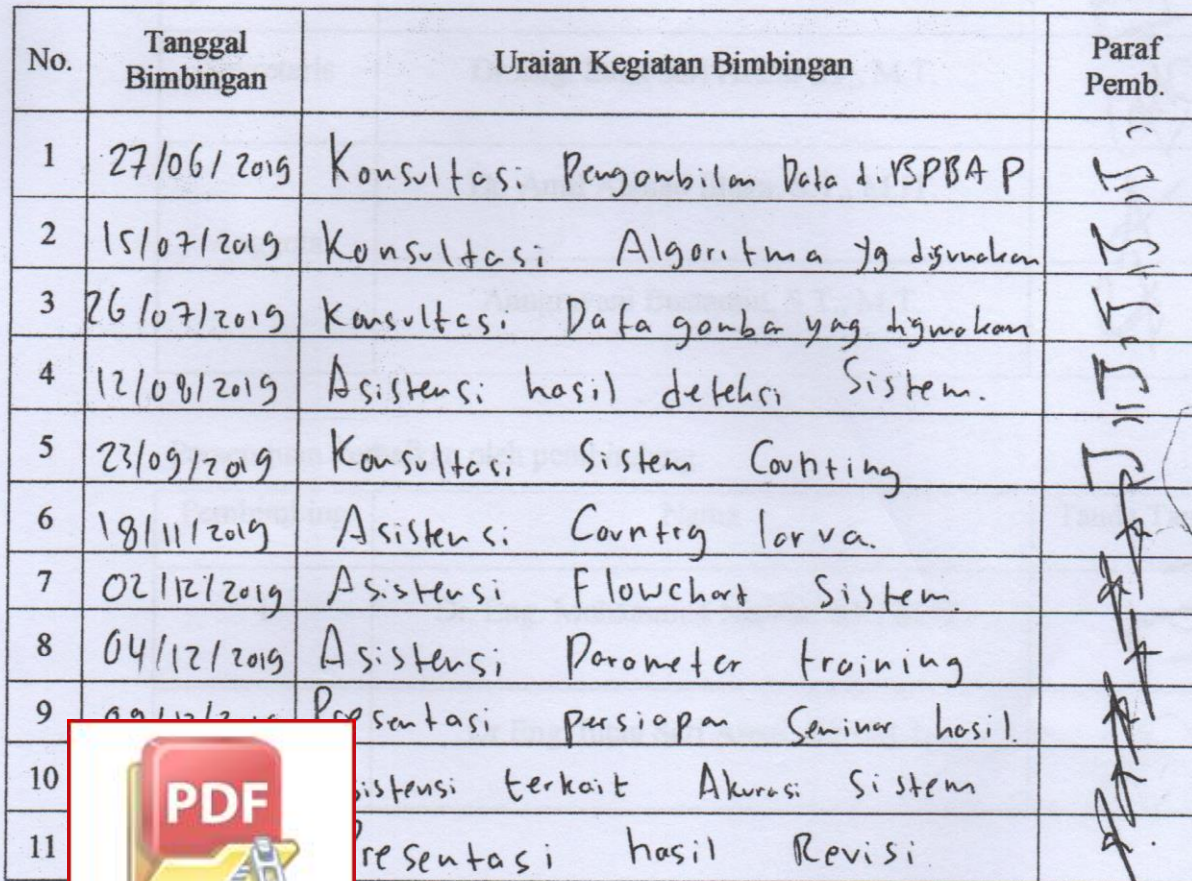 No. Tanggal Bimbingan Uraian Kegiatan Bimbingan Paraf Pemb.
1 27/06/2019 Konsultasi Pengambilan Data di BPBAP
2 15/07/2019 Konsultasi Algoritma yg digunakan
3 26/07/2019 Konsultasi Data gambar yag digunakan
4 12/08/2019 Asistensi hasil deteksi Sistem.
5 23/09/2019 Konsultasi Sistem Counting
6 18/11/2019 Asistensi Countig larva.
7 02/12/2019 Asistensi Flowchart Sistem.
8 04/12/2019 Asistensi Parameter training
9 Presentasi persiapan Seminar hasil.
10 sistensi terkait Akurasi Sistem
11 resentasi hasil Revisi
PDF